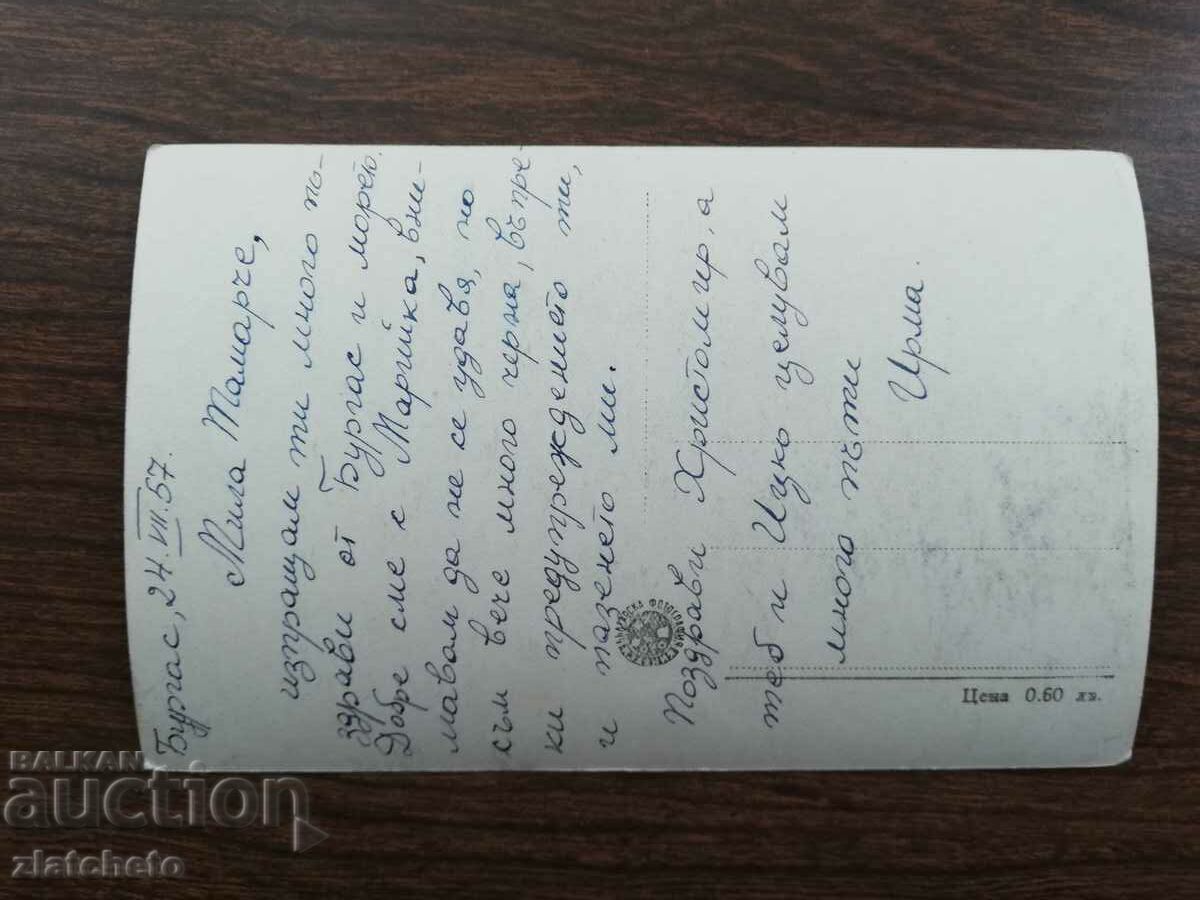 Бургас, 24.VII.57.
Мила Тамарче,
изпращам ти много по-
здрави от Бургас и морето.
Добре сме с Марийка, вни-
мавам да не се удавя, но
съм вече много черна, въпре-
ки предупреждението ти,
и пазенето ми.
Поздрави Христомир, а
теб и Ицко целувам
много пъти
Ирма.
БЪЛГАРСКА ФОТОГРАФИЯ
Цена 0.60 лв.
BALKAN
auction
zlatcheto